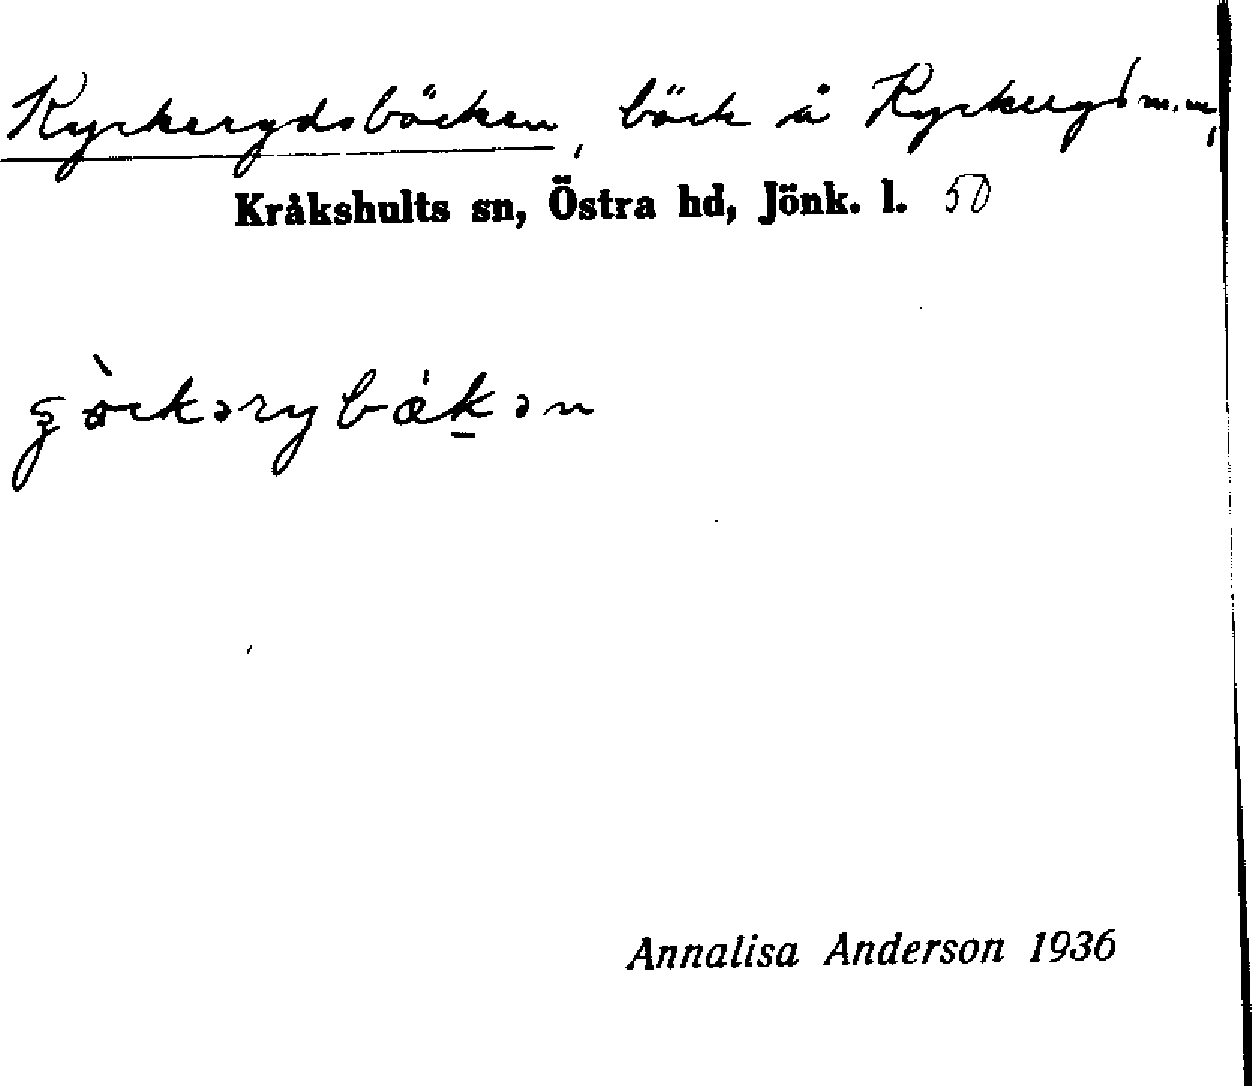 Kyckerydsbäcken, bäck å Kyckeryd m.m,
Kråkshults sn, Östra hd, Jönk. l. 50
Annalisa Anderson 1936